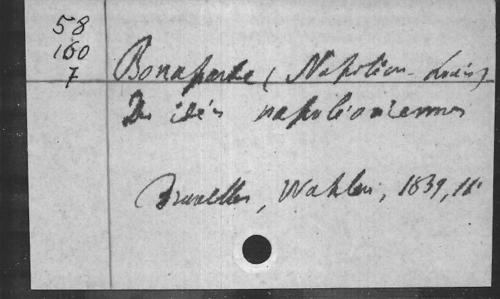 58
160
7
Bonaparte (Napoléon-Louis)
Des idées napoléoniennes
Bruxelles, Wahlen, 1839, 16°